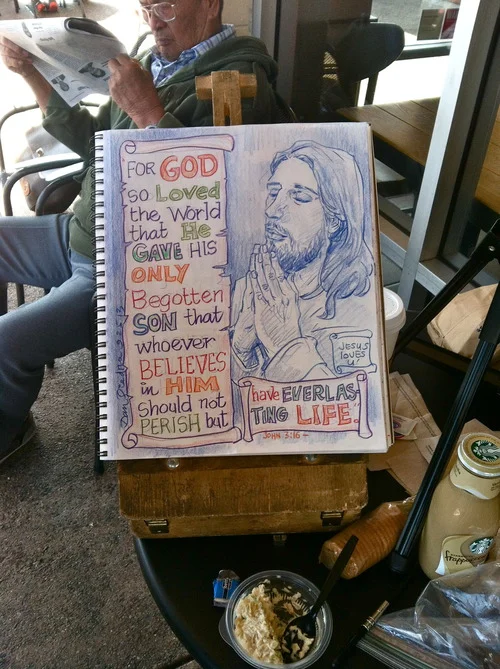 FOR GOD
so Loved
the World
that He
GAVE HIS
ONLY
Begotten
SON that
whoever
BELIEVES
in HIM
should not
PERISH but
have EVERLAS
TING LIFE.
JOHN 3:16
JESUS
LOVES
U!
frappuccino